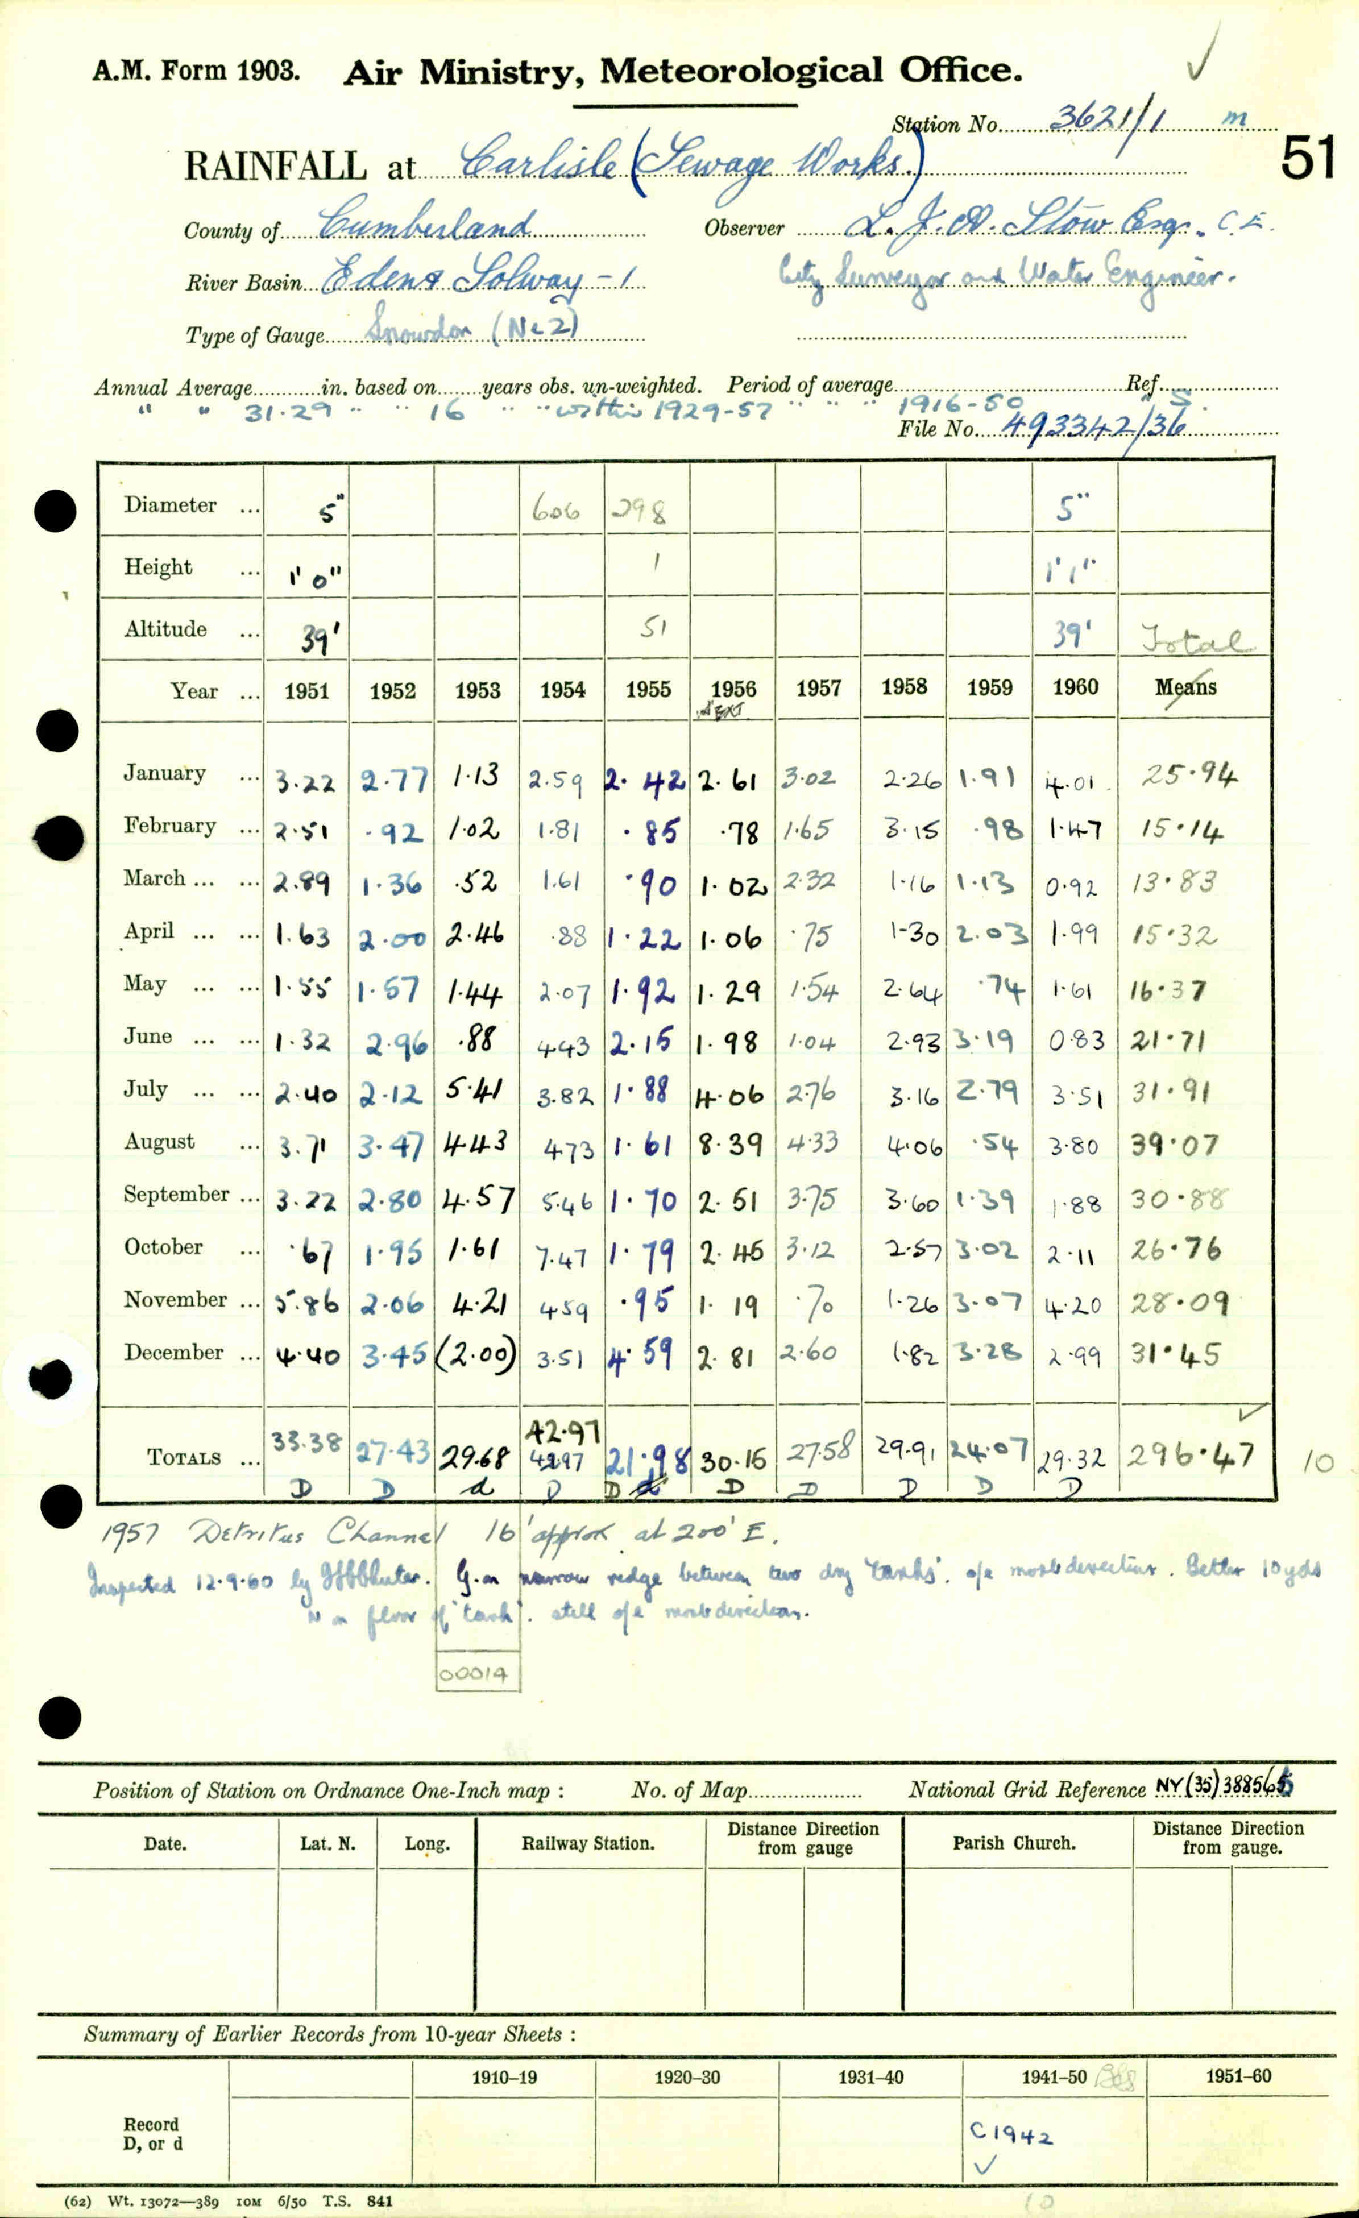 A.M. Form 1903. Air Ministry, Meteorological Office.
Station No. 3621/1 m
51
RAINFALL at Carlisle (Sewage Works.)
County of Cumberland Observer L. J. A. Stow Esq. C.E.
River Basin Eden & Solway - 1 City Surveyor and Water Engineer.
Type of Gauge Snowdon (No 2)
Annual Average in. based on years obs. un-weighted. Period of average Ref.
" " 31.29 " " 16 " " within 1929-57 " " " 1916-50 " S.
File No. 493342/36
Diameter ... 5" 606 298 5"
Height ... 1' 0" 1 1' 1"
Altitude ... 39' 51 39' Total
Year ... 1951 1952 1953 1954 1955 1956 1957 1958 1959 1960 Means
January ... 3.22 2.77 1.13 2.59 2.42 2.61 3.02 2.26 1.91 4.01 25.94
February ... 2.51 .92 1.02 1.81 .85 .78 1.65 3.15 .98 1.47 15.14
March ... ... 2.89 1.36 .52 1.61 .90 1.02 2.32 1.16 1.13 0.92 13.83
April ... ... 1.63 2.00 2.46 .88 1.22 1.06 .75 1.30 2.03 1.99 15.32
May ... ... 1.55 1.57 1.44 2.07 1.92 1.29 1.54 2.64 .74 1.61 16.37
June ... ... 1.32 2.96 .88 4.43 2.15 1.98 1.04 2.93 3.19 0.83 21.71
July ... ... 2.40 2.12 5.41 3.82 1.88 4.06 2.76 3.16 2.79 3.51 31.91
August ... 3.71 3.47 4.43 4.73 1.61 8.39 4.33 4.06 .54 3.80 39.07
September ... 3.22 2.80 4.57 5.46 1.70 2.51 3.75 3.60 1.39 1.88 30.88
October ... .67 1.95 1.61 7.47 1.79 2.45 3.12 2.57 3.02 2.11 26.76
November ... 5.86 2.06 4.21 4.59 .95 1.19 .70 1.26 3.07 4.20 28.09
December ... 4.40 3.45 (2.00) 3.51 4.59 2.81 2.60 1.82 3.28 2.99 31.45
42.97
TOTALS ... 33.38 27.43 29.68 42.97 21.98 30.15 27.58 29.91 24.07 29.32 296.47 10
D D d D D d D D D D D
1957 Detritus Channel 16' approx at 200' E.
Inspected 12.9.60 by G. on narrow ridge between two dry 'tanks'. o/e most directions. Better 10 yds
N on floor of 'tank'. still o/e most directions.
00014
Position of Station on Ordnance One-Inch map : No. of Map National Grid Reference NY (35) 388565
Date. Lat. N. Long. Railway Station. Distance from Direction gauge Parish Church. Distance from Direction gauge.
Summary of Earlier Records from 10-year Sheets :
1910–19 1920–30 1931–40 1941–50 1951–60
Record
D, or d
C 1942
10
(62) Wt. 13072—389 10M 6/50 T.S. 841